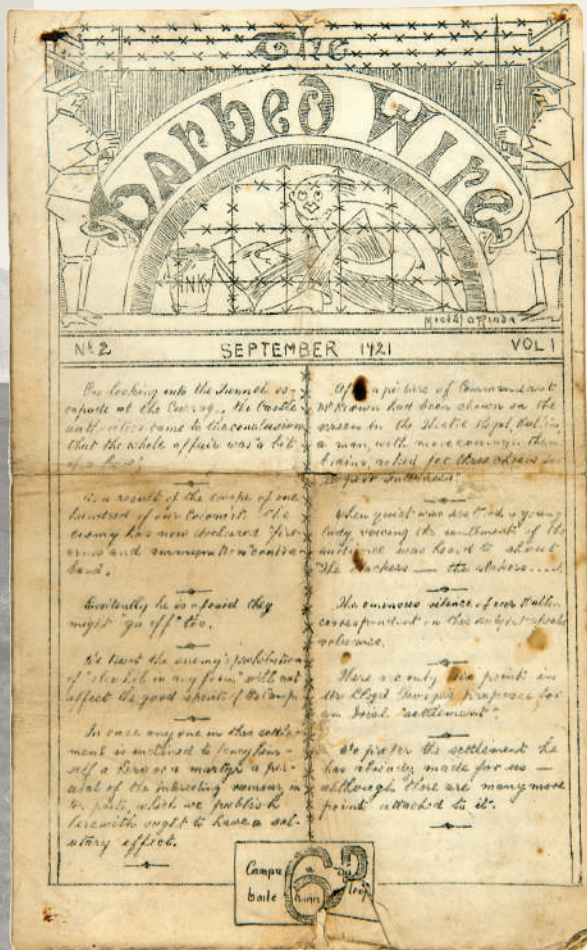 The
Barbed Wire
INK
Micheál O'Riada
No 2 SEPTEMBER 1921 VOL 1
On looking into the Tunnel es-
capade at the Curragh, the Castle
authorities came to the conclusion
that the whole affair was a bit
of a
As a result of the escape of one
hundred of our Colonist. The
enemy has now declared "fire
arms and ammunition" contra-
band.
Evidently he is afraid they
might "go off" too.
We trust the enemy's prohibition
of "alcohol in any form" will not
affect the good spirits of the Camp
In case any one in this settle-
ment is inclined to fancy him-
self a hero or a martyr a per-
usal of the interesting rumours in
the poets, which we publish
herewith ought to have a sal-
utary effect.
After a picture of Commandant
McKeown had been shown on the
screen in the Theatre Royal, Dublin
a man, with more courage than
brains, asked for three cheers
When quiet was restored a young
lady voicing the sentiments of the
audience was heard to shout
The
The ominous silence of our Ballin
correspondent on this subject speaks
volumes.
There are only six points in
Mr Lloyd George's proposes for
an Irish "settlement".
We prefer the settlement he
has already made for us —
although there are many more
points attached to it.
Campa
baile
6D